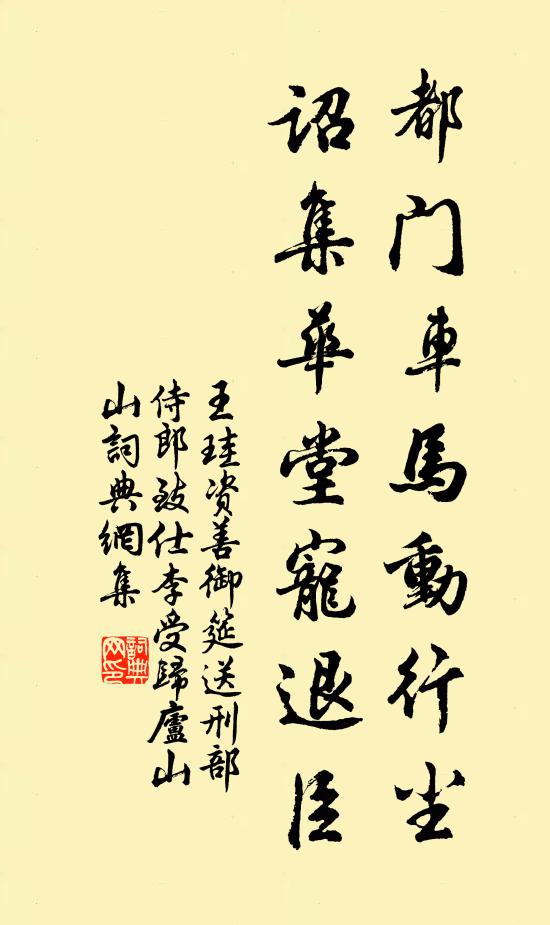 都門車馬動行尘
詔集華堂寵退臣
王珪资善御筵送刑部
侍郎致仕李受歸廬山
山詞典網集
詞典网印